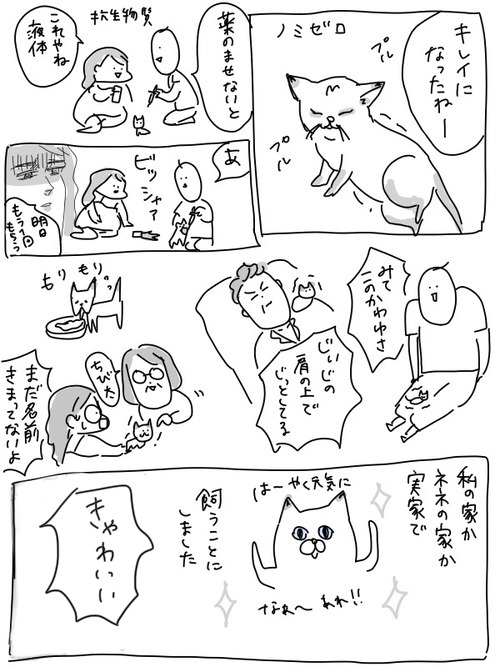 キレイに
なったねー
ノミゼロ
プル
プル
薬のませないと
抗生物質
これやね
液体
あ
ビッシャァ
明日
もう1回
もらう
みて
このかわゆさ
じぃじの
肩の上で
じっとしてる
もり もりっ
ちびた
まだ名前
きまってないよ
私の家か
ネネの家か
実家で
飼うことに
しました
はーやく元気に
なぁれ〜 あれ!!
きゃわいい